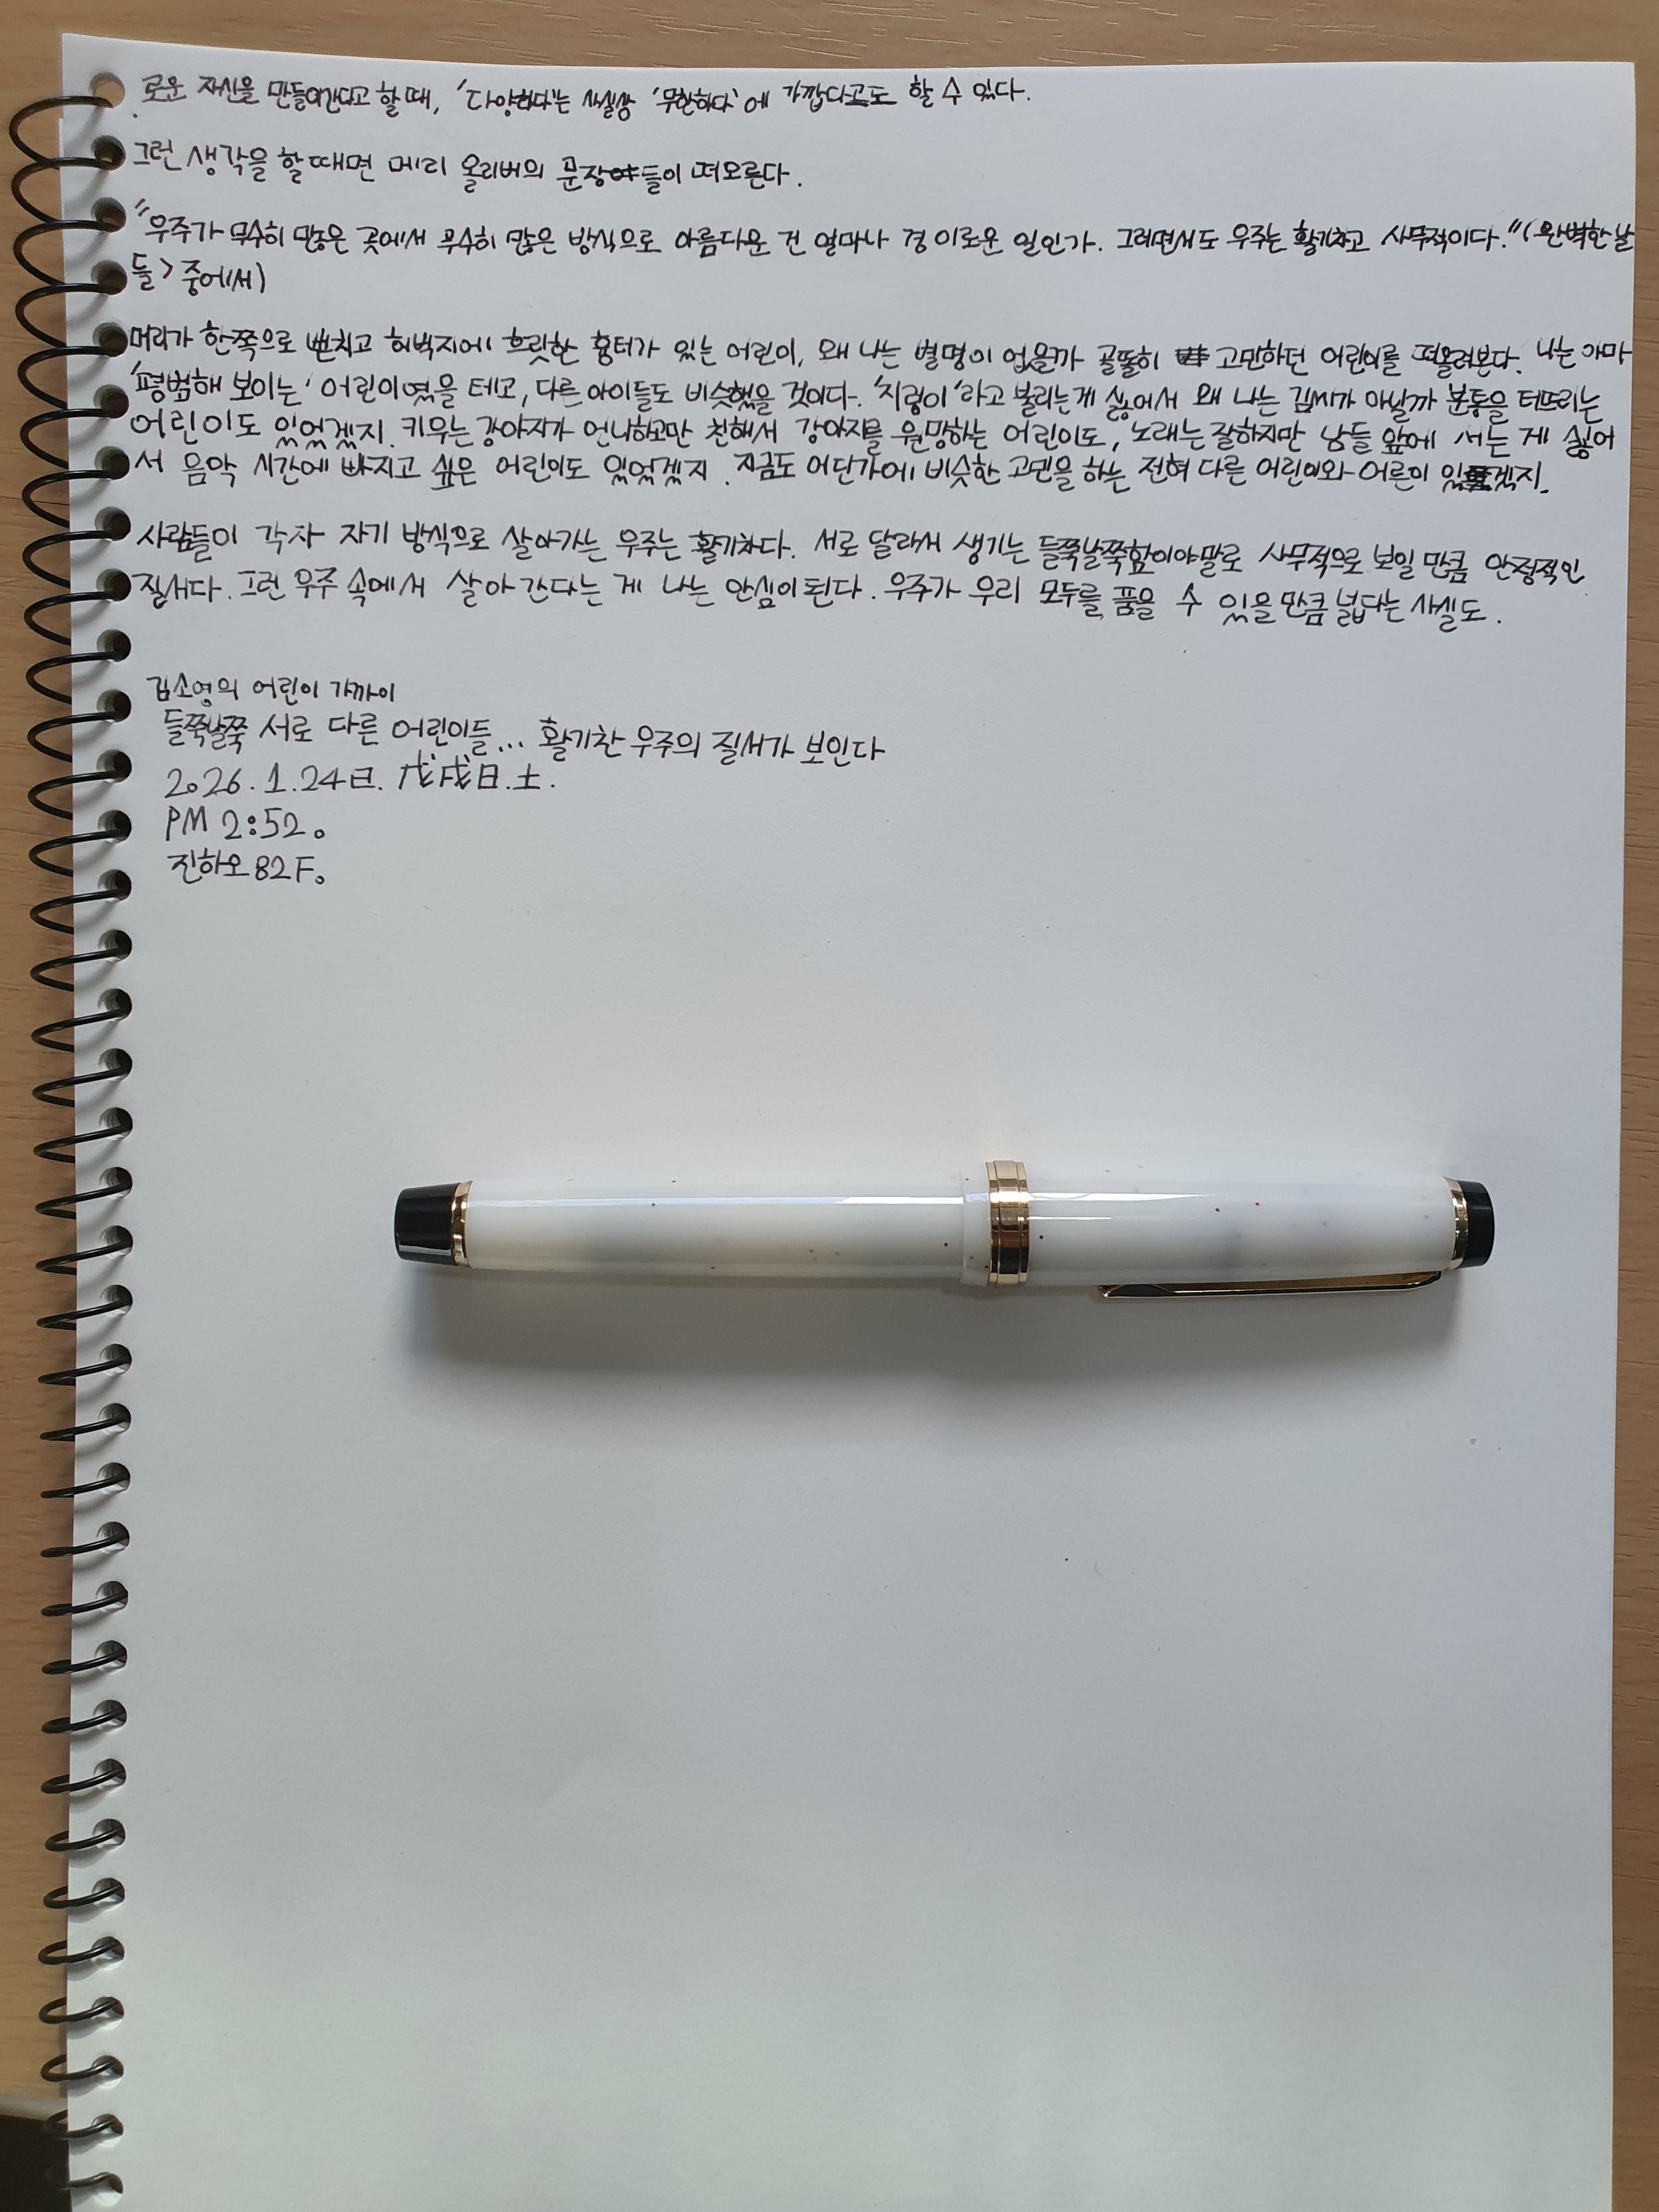 로운 자신을 만들어간다고 할 때, '다양하다'는 사실상 '무한하다'에 가깝다고도 할 수 있다.
그런 생각을 할 때면 메리 올리버의 문장들이 떠오른다.
"우주가 무수히 많은 곳에서 무수히 많은 방식으로 아름다운 건 얼마나 경이로운 일인가. 그러면서도 우주는 활기차고 사무적이다." (완벽한 날
들> 중에서)
머리가 한쪽으로 뻗치고 허벅지에 흐릿한 흉터가 있는 어린이, 왜 나는 별명이 없을까 골똘히 고민하던 어린이를 떠올려본다. 나는 아마
'평범해 보이는' 어린이였을 테고, 다른 아이들도 비슷했을 것이다. '지렁이'라고 불리는게 싫어서 왜 나는 김씨가 아닐까 분통을 터뜨리는
어린이도 있었겠지. 키우는 강아지가 언니하고만 친해서 강아지를 원망하는 어린이도, 노래는 잘하지만 남들 앞에 서는 게 싫어
서 음악 시간에 빠지고 싶은 어린이도 있었겠지. 지금도 어딘가에 비슷한 고민을 하는, 전혀 다른 어린이와 어른이 있겠지.
사람들이 각자 자기 방식으로 살아가는 우주는 활기차다. 서로 달라서 생기는 들쭉날쭉함이야말로 사무적으로 보일 만큼 안정적인
질서다. 그런 우주 속에서 살아 간다는 게 나는 안심이 된다. 우주가 우리 모두를 품을 수 있을 만큼 넓다는 사실도.
김소영의 어린이 가까이
들쭉날쭉 서로 다른 어린이들... 활기찬 우주의 질서가 보인다
2026. 1. 24日. 戊戌日. 土.
PM 2:52。
진하오 82F。